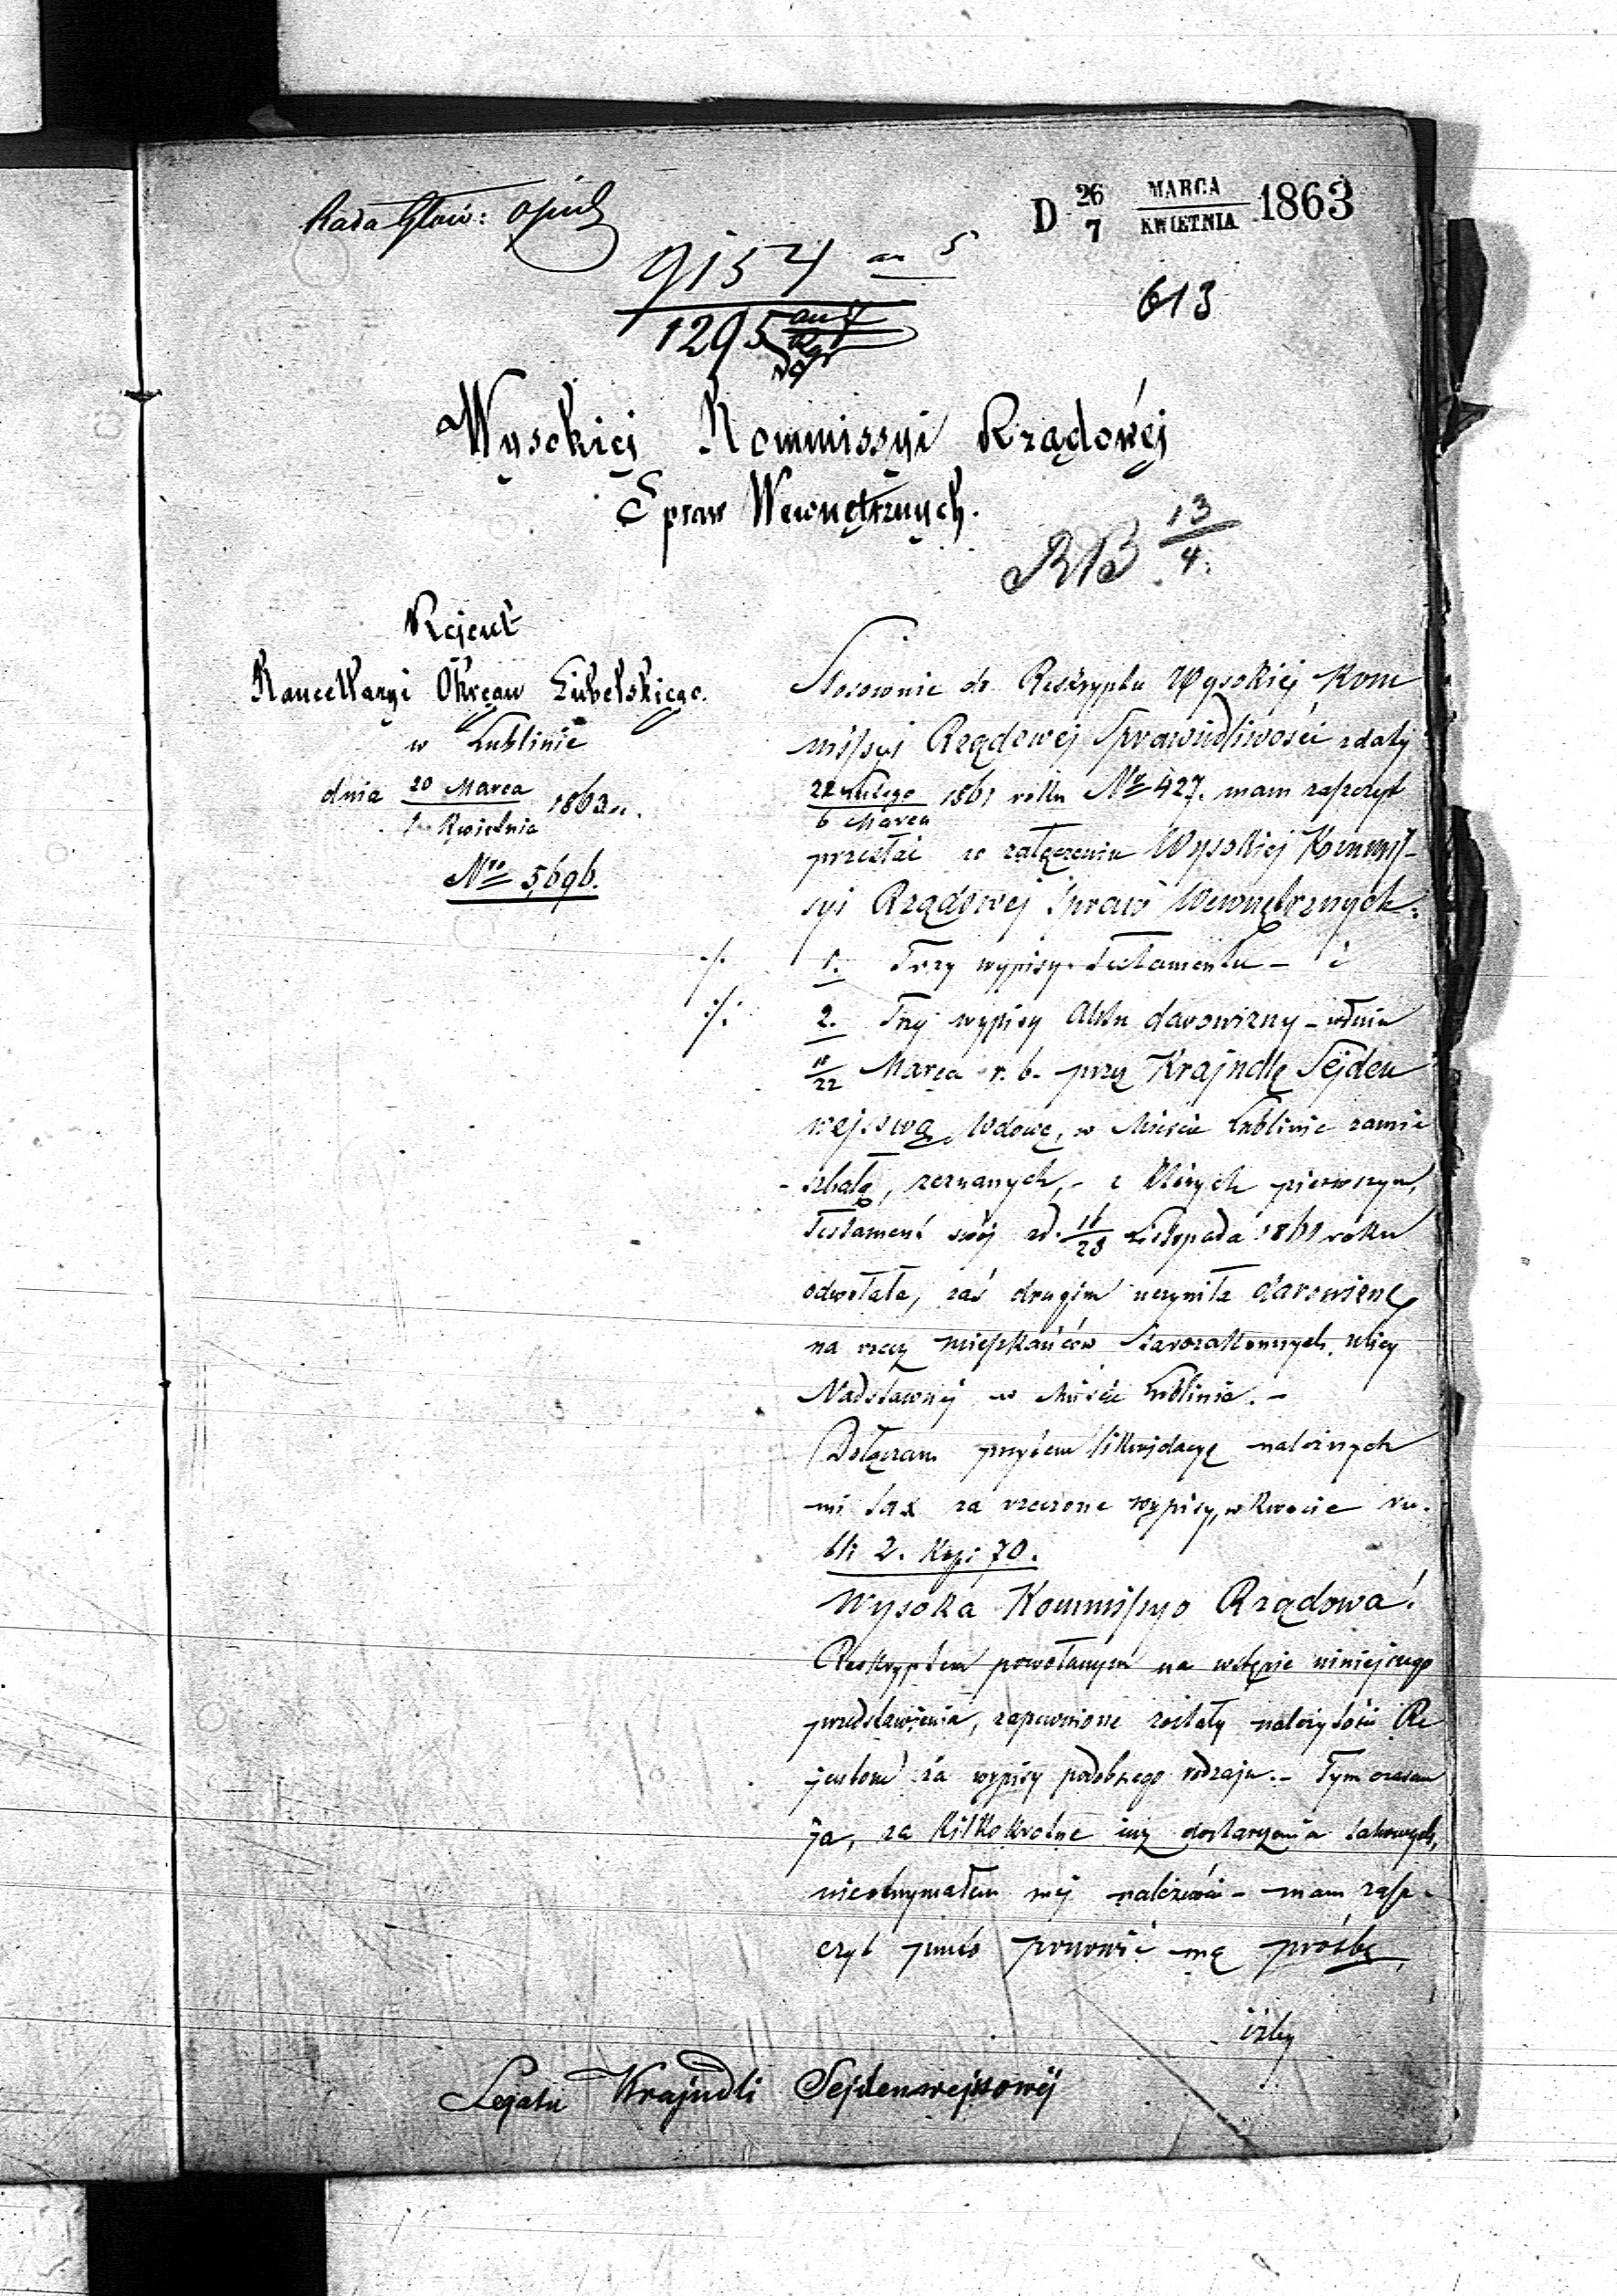 Rada Głów: Opiek
D 26/7 MARCA/KWIETNIA 1863
9154
1295
613
Wysokiej Kommissyi Rządowéj
Spraw Wewnętrznych.
13/4
Rejent
Kancellaryi Okręgu Lubelskiego.
w Lublinie
dnia 20 Marca/1 Kwietnia 1863 r.
Nro 5,696.
Stosownie do Reskryptu Wysokiej Kom
missyi Rządowej Sprawiedliwości z daty
22 Lutego/6 Marca 1861 roku No 427. mam zaszczyt
przesłać w załączeniu Wysokiej Kommis-
syi Rządowej Spraw Wewnętrznych:
1. Trzy wypisy Testamentu – i
2. Trzy wypisy Aktu darowizny – w dniu
/22 Marca r. b. przez Krajndlę Sejden
wejsową, Wdowę, w Mieście Lublinie zamie
-szkałą, zeznanych, – z których pierwszym,
Testament swój z d. 16/28 Listopada 1861 roku
odwołała, zaś drugim uczyniła darowiznę
na rzecz mieszkańców Starozakonnych, ulicy
Nadstawnej w Mieście Lublinie. –
Dołączam przytem likwidacyę należnych
mi tax za rzeczone wypisy, w kwocie ru-
bli 2. kop: 70.
Wysoka Kommissyo Rządowa!
Reskryptem powołanym na wstępie niniejszego
przedstawienia, zapewnione zostały należytości Re
jentom za wypisy podobnego rodzaju. – Tymczasem
ja, za kilkokrotne już dostarczenia takowych,
nieotrzymałem mej należności – mam zasz-
czyt przeto ponowić mą prośbę,
iżby
Legatu Krajndli Sejdenwejssowéj